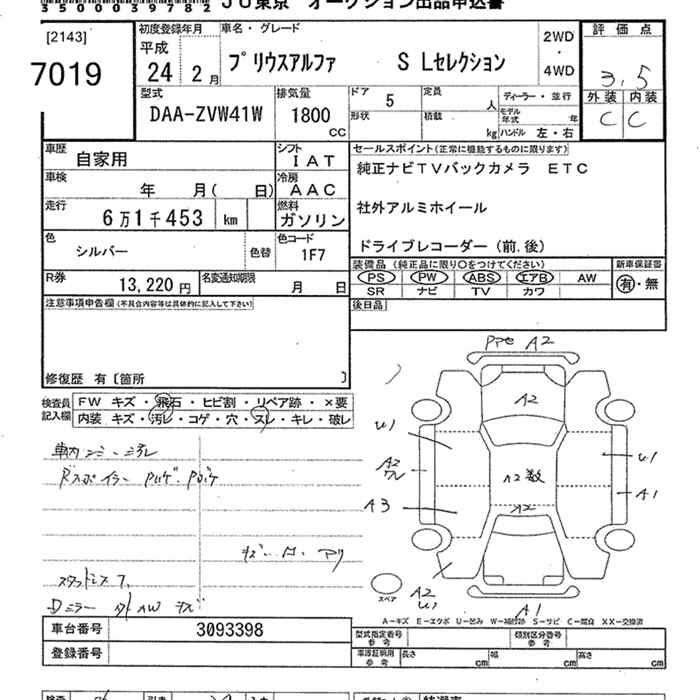 3500039782 JU東京 オークション出品申込書
[2143]
7019
初度登録年月
平成
24 2月
車名・グレード
プリウスアルファ S Lセレクション
2WD
・
4WD
評価点
3.5
外装 内装
C C
型式
DAA-ZVW41W
排気量
1800
CC
ドア 5
定員 人
形状
積載 kg
ディーラー・並行
モデル年式 年
ハンドル 左・右
車歴
自家用
シフト
IAT
車検
年 月( 日)
冷房
AAC
走行
6万1千453 km
燃料
ガソリン
色
シルバー
色替
色コード
1F7
R券
13,220円
名変通知期限
月 日
セールスポイント(正常に機能するものに限ります)
純正ナビTVバックカメラ ETC
社外アルミホイール
ドライブレコーダー(前,後)
装備品(純正品に限り○をつけてください)
PS PW ABS エアB AW
SR ナビ TV カワ
新車保証書
有・無
後日品
注意事項申告欄(不具合内容等は具体的に記入して下さい)
修復歴 有〔箇所 〕
検査員記入欄
FW キズ・飛石・ヒビ割・リペア跡・×要
内装 キズ・汚レ・コゲ・穴・スレ・キレ・破レ
A2
A2
U1
U1
A2
A2数
A1
A3
A2
A2
U1
スペア
A1
A-キズ E-エクボ U-凹み W-補修跡 S-サビ C-腐食 XX-交換済
車台番号
3093398
登録番号
型式指定番号
参考
類別区分番号
参考
車庫証明用
参考
長さ cm
幅 cm
高さ cm